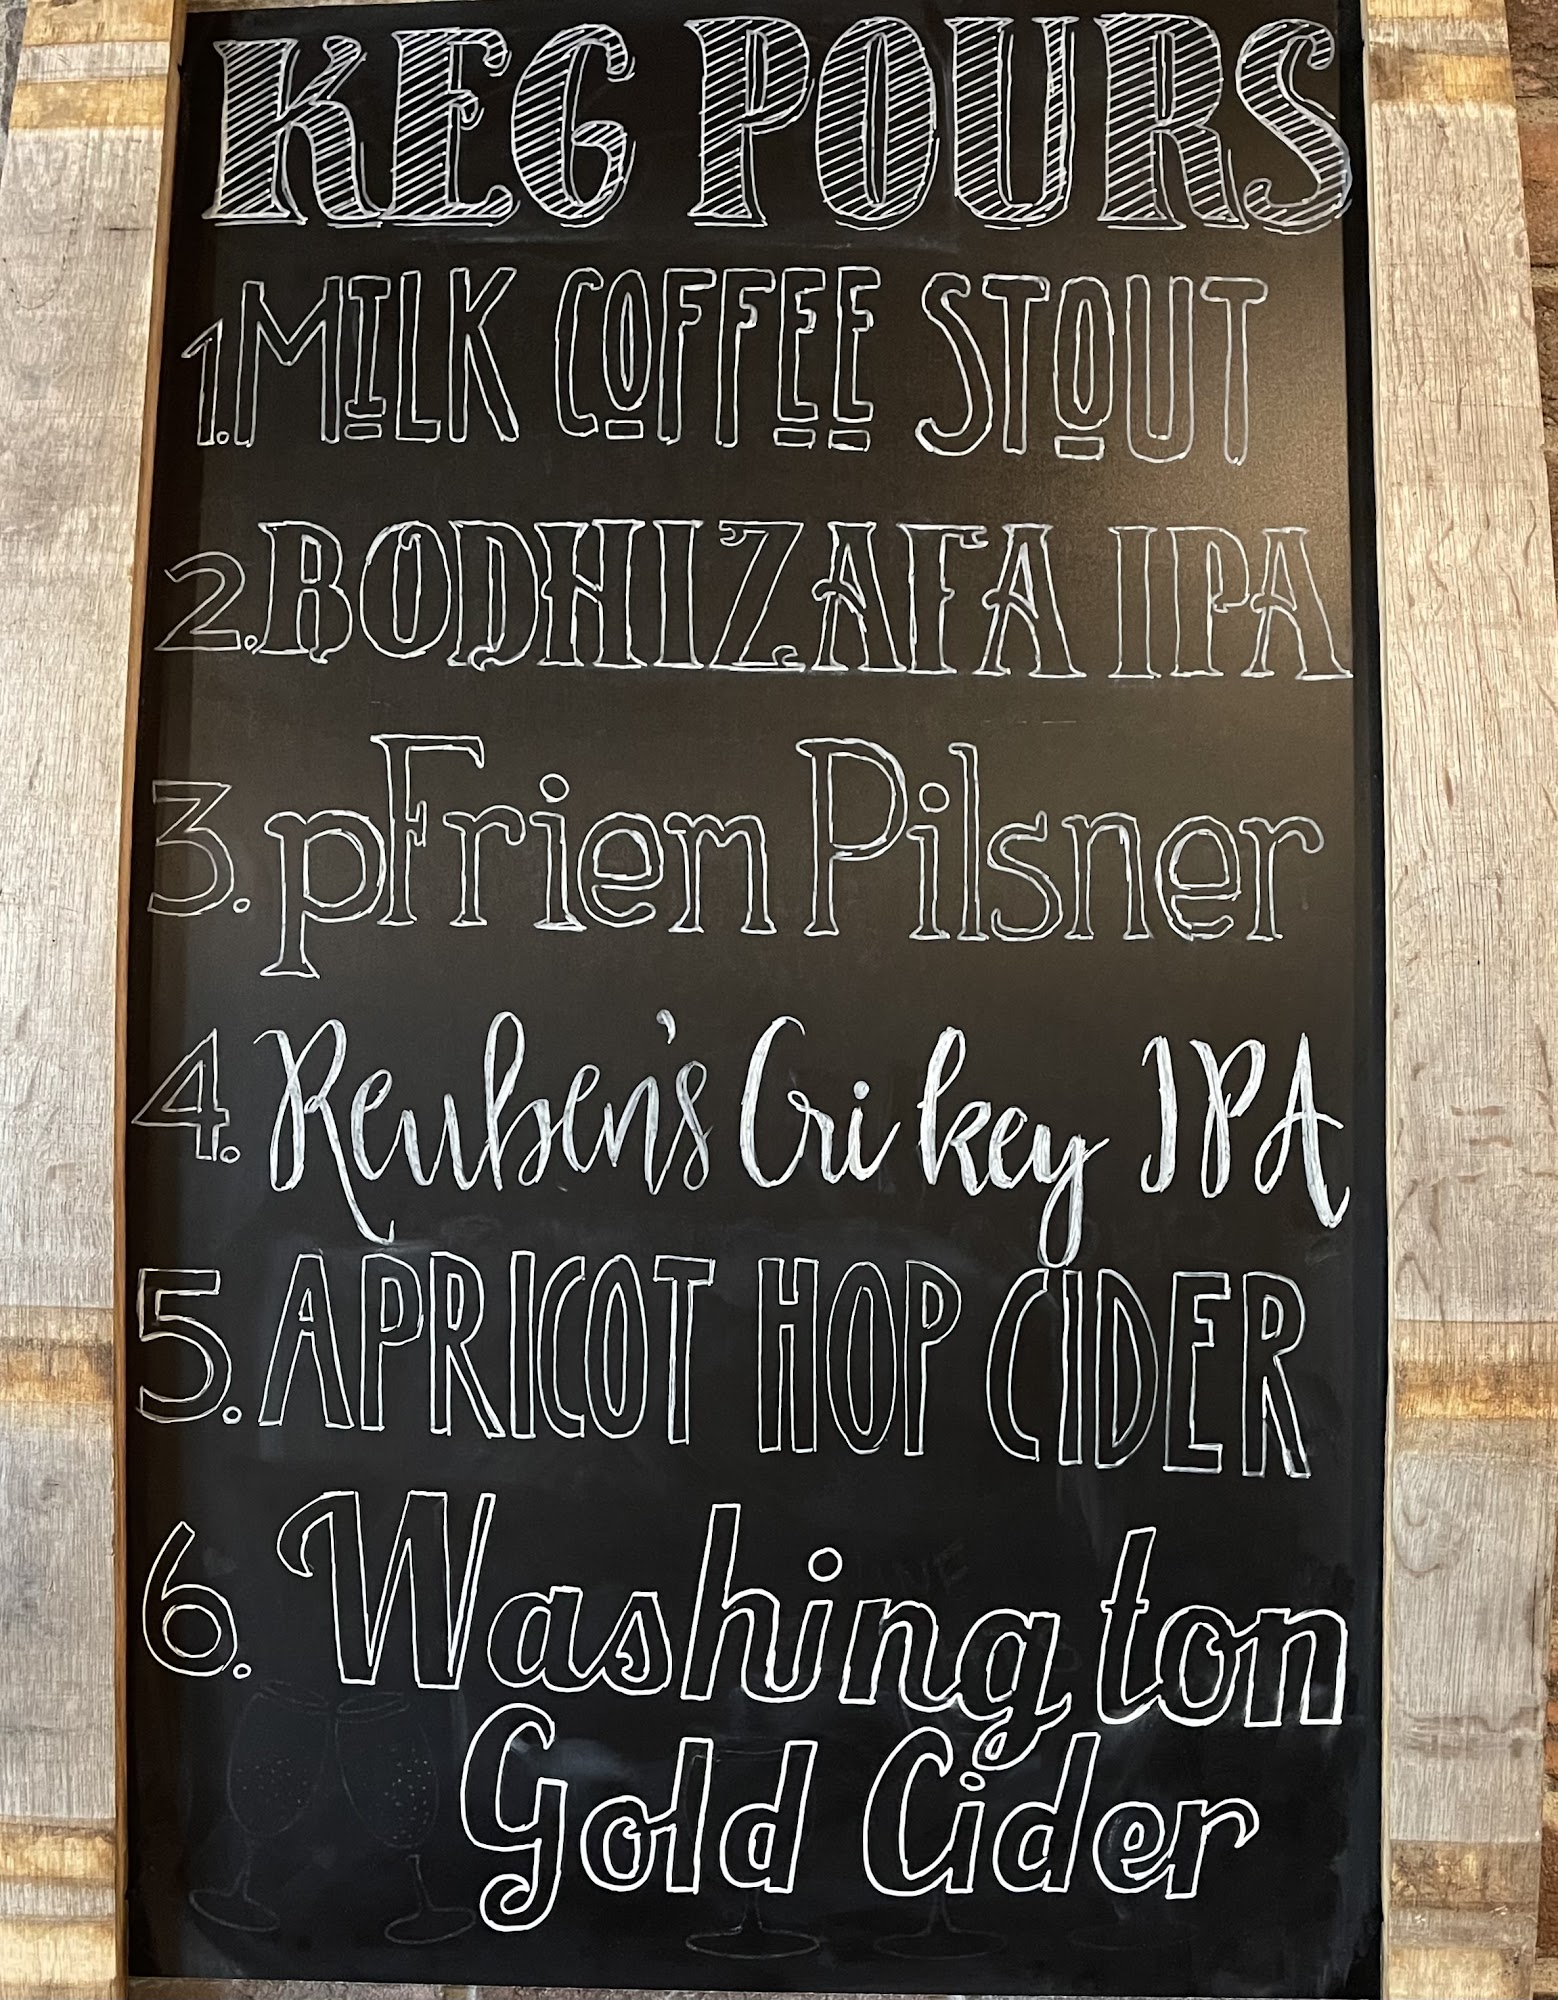 KEG POURS
1. MILK COFFEE STOUT
2. BODHIZAFA IPA
3. pFriem Pilsner
4. Reuben's Crikey IPA
5. APRICOT HOP CIDER
6. Washington
Gold Cider